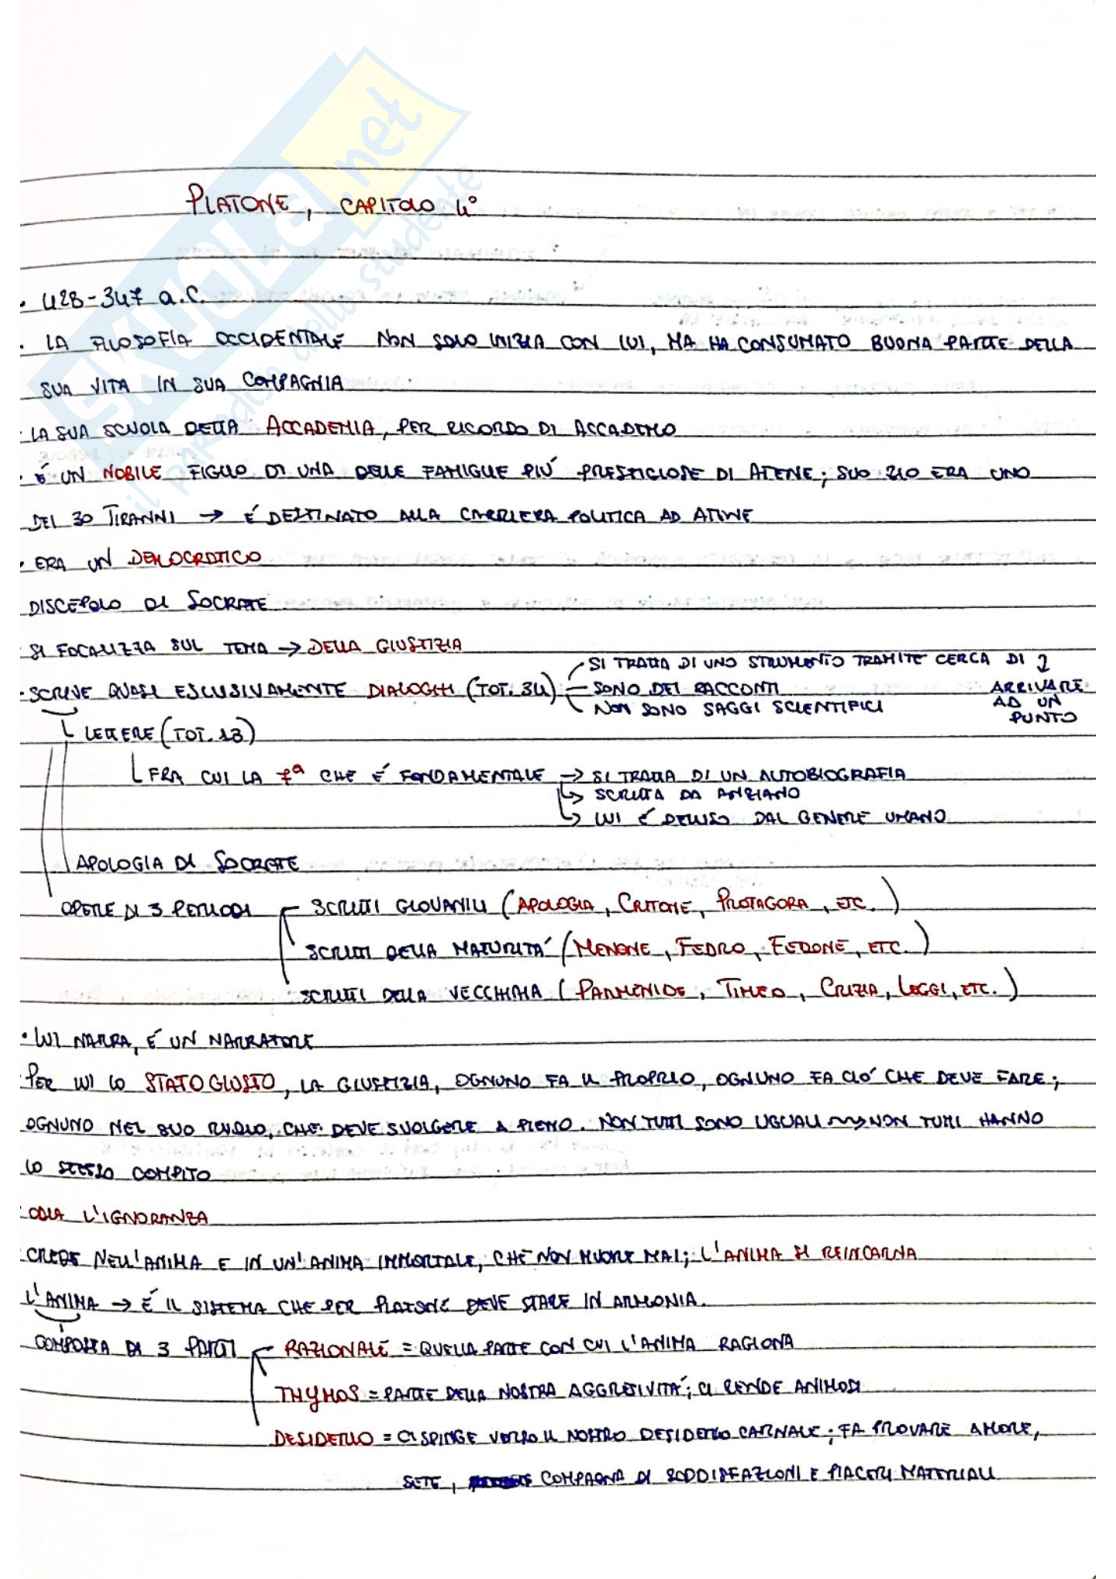 SKUOLA.net
il paradiso dello studente
PLATONE, CAPITOLO 4°
• 428-347 a.C.
• LA FILOSOFIA OCCIDENTALE NON SOLO INIZIA CON LUI, MA HA CONSUMATO BUONA PARTE DELLA
SUA VITA IN SUA COMPAGNIA
• LA SUA SCUOLA DETTA ACCADEMIA, PER RICORDO DI ACCADEMO
• É UN NOBILE FIGLIO DI UNA DELLE FAMIGLIE PIÚ PRESTIGIOSE DI ATENE; SUO ZIO ERA UNO
DEI 30 TIRANNI → É DESTINATO ALLA CARRIERA POLITICA AD ATENE
• ERA UN DEMOCRATICO
DISCEPOLO DI SOCRATE
SI FOCALIZZA SUL TEMA → DELLA GIUSTIZIA
• SCRIVE QUASI ESCLUSIVAMENTE DIALOGHI (TOT. 34)
SI TRATTA DI UNO STRUMENTO TRAMITE CERCA DI
ARRIVARE
AD UN
PUNTO
SONO DEI RACCONTI
NON SONO SAGGI SCIENTIFICI
LETTERE (TOT. 13)
FRA CUI LA 7ª CHE É FONDAMENTALE → SI TRATTA DI UN AUTOBIOGRAFIA
→ SCRITTA DA ANZIANO
→ LUI É DELUSO DAL GENERE UMANO
APOLOGIA DI SOCRATE
OPERE DI 3 PERIODI
SCRITTI GIOVANILI (APOLOGIA, CRITONE, PROTAGORA, ETC.)
SCRITTI DELLA MATURITÁ (MENONE, FEDRO, FEDONE, ETC.)
SCRITTI DELLA VECCHIAIA (PARMENIDE, TIMEO, CRIZIA, LEGGI, ETC.)
• LUI NARRA, É UN NARRATORE
PER LUI LO STATO GIUSTO, LA GIUSTIZIA, OGNUNO FA IL PROPRIO, OGNUNO FA CIÓ CHE DEVE FARE;
OGNUNO NEL SUO RUOLO, CHE DEVE SVOLGERE A PIENO. NON TUTTI SONO UGUALI → NON TUTTI HANNO
LO STESSO COMPITO
ODIA L'IGNORANZA
CREDE NELL'ANIMA E IN UN'ANIMA IMMORTALE, CHE NON MUORE MAI; L'ANIMA SI REINCARNA
L'ANIMA → É IL SISTEMA CHE PER PLATONE DEVE STARE IN ARMONIA.
COMPOSTA DA 3 PARTI
RAZIONALE = QUELLA PARTE CON CUI L'ANIMA RAGIONA
THYMOS = PARTE DELLA NOSTRA AGGRESIVITÁ; CI RENDE ANIMOSI
DESIDERIO = CI SPINGE VERSO IL NOSTRO DESIDERIO CARNALE; FA PROVARE AMORE,
SETE, COMPAGNA DI SODDISFAZIONI E PIACERI MATERIALI